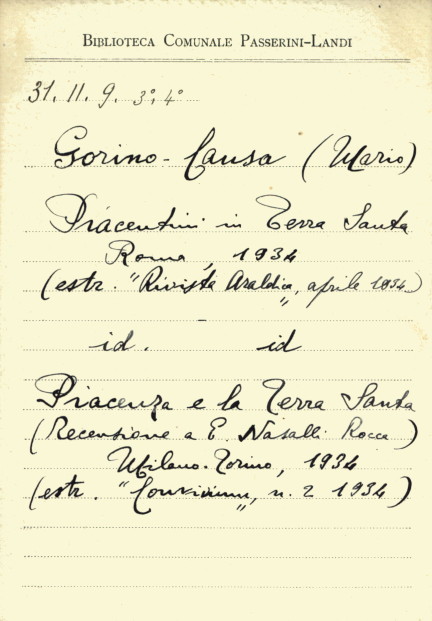 BIBLIOTECA COMUNALE PASSERINI-LANDI
31. 11. 9. 3º. 4º
Gorino-Causa (Mario)
Piacentini in Terra Santa
Roma, 1934
(estr. "Rivista Araldica", aprile 1934)
id. id
Piacenza e la Terra Santa
(Recensione a E. Nasalli Rocca)
Milano-Torino, 1934
(estr. "Convivium", n. 2 1934)